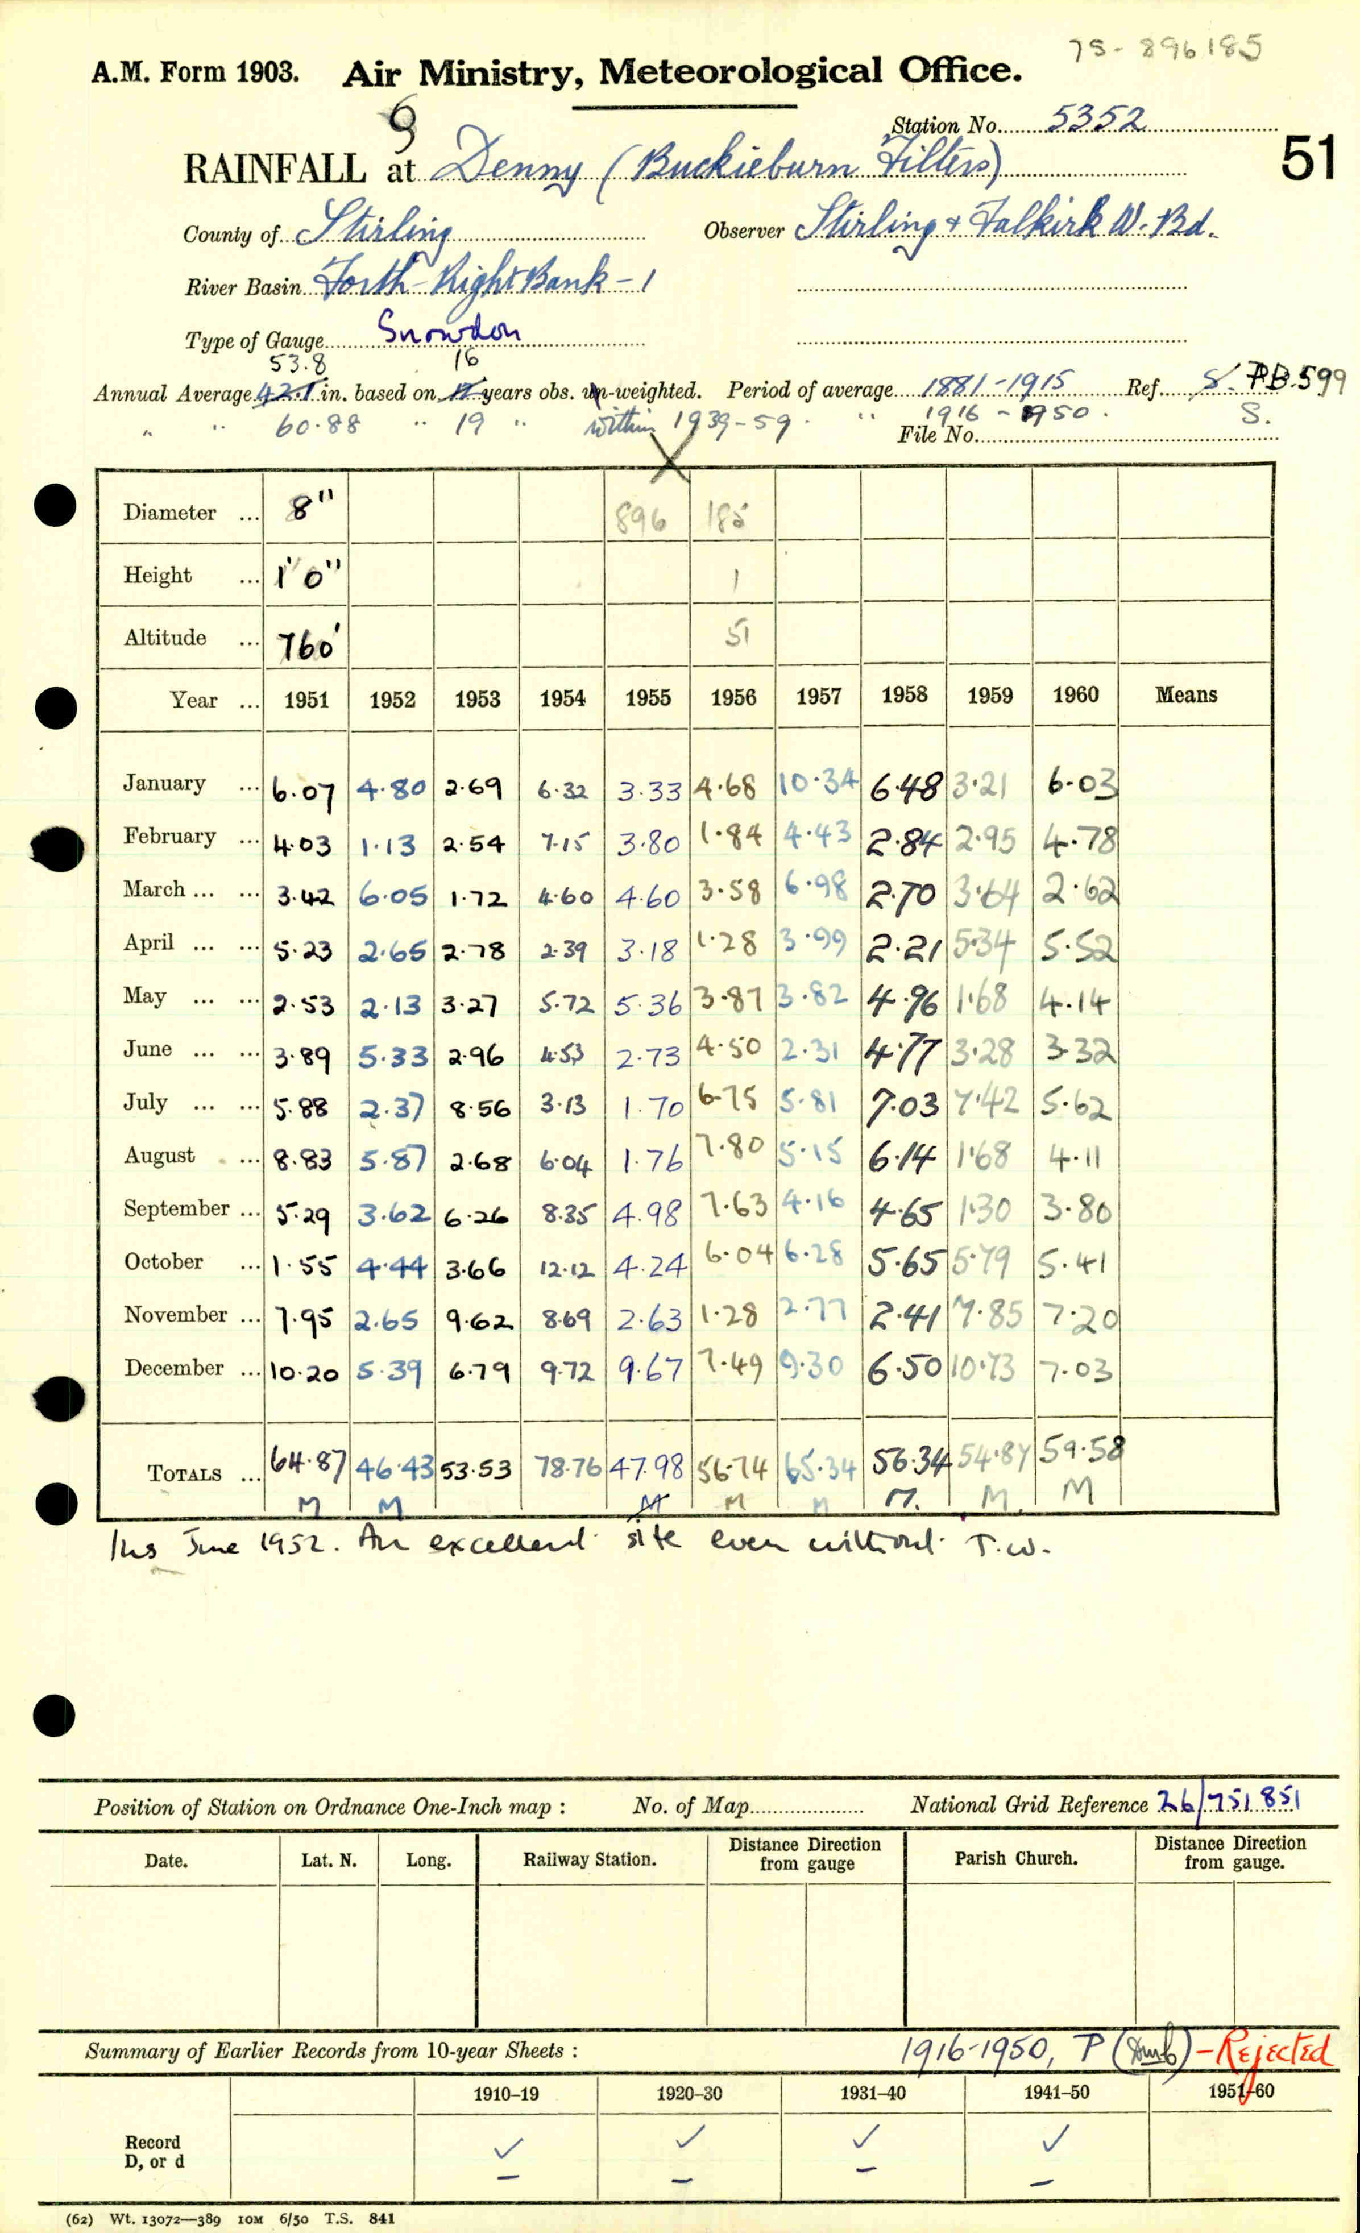 75-896185
A.M. Form 1903. Air Ministry, Meteorological Office.
9
Station No. 5352
RAINFALL at Denny (Buckieburn Filters)
51
County of Stirling Observer Stirling & Falkirk W. Bd.
River Basin Forth-Right Bank-1
Type of Gauge Snowdon
53.8 16
Annual Average 42.1 in. based on 17 years obs. un-weighted. Period of average 1881-1915 Ref. S. PB.599
" " 60.88 " 19 " within 1939-59. " 1916-1950. S.
File No.
Diameter ... 8" 896 185
Height ... 1'0" 1
Altitude ... 760' 51
Year ... 1951 1952 1953 1954 1955 1956 1957 1958 1959 1960 Means
January ... 6.07 4.80 2.69 6.32 3.33 4.68 10.34 6.48 3.21 6.03
February ... 4.03 1.13 2.54 7.15 3.80 1.84 4.43 2.84 2.95 4.78
March ... ... 3.42 6.05 1.72 4.60 4.60 3.58 6.98 2.70 3.64 2.62
April ... ... 5.23 2.65 2.78 2.39 3.18 1.28 3.99 2.21 5.34 5.52
May ... ... 2.53 2.13 3.27 5.72 5.36 3.87 3.82 4.96 1.68 4.14
June ... ... 3.89 5.33 2.96 4.53 2.73 4.50 2.31 4.77 3.28 3.32
July ... ... 5.88 2.37 8.56 3.13 1.70 6.75 5.81 7.03 7.42 5.62
August ... 8.83 5.87 2.68 6.04 1.76 7.80 5.15 6.14 1.68 4.11
September ... 5.29 3.62 6.26 8.35 4.98 7.63 4.16 4.65 1.30 3.80
October ... 1.55 4.44 3.66 12.12 4.24 6.04 6.28 5.65 5.79 5.41
November ... 7.95 2.65 9.62 8.69 2.63 1.28 2.77 2.41 7.85 7.20
December ... 10.20 5.39 6.79 9.72 9.67 7.49 9.30 6.50 10.73 7.03
TOTALS ... 64.87 46.43 53.53 78.76 47.98 56.74 65.34 56.34 54.87 59.58
M M M M M M. M. M
Ins June 1952. An excellent site even without T.W.
Position of Station on Ordnance One-Inch map : No. of Map National Grid Reference 26/751851
Date. Lat. N. Long. Railway Station. Distance Direction from gauge Parish Church. Distance Direction from gauge.
Summary of Earlier Records from 10-year Sheets : 1916-1950, P (Dumb) - Rejected
1910-19 1920-30 1931-40 1941-50 1951-60
Record ✓ ✓ ✓ ✓
D, or d – – – –
(62) Wt. 13072—389 10M 6/50 T.S. 841